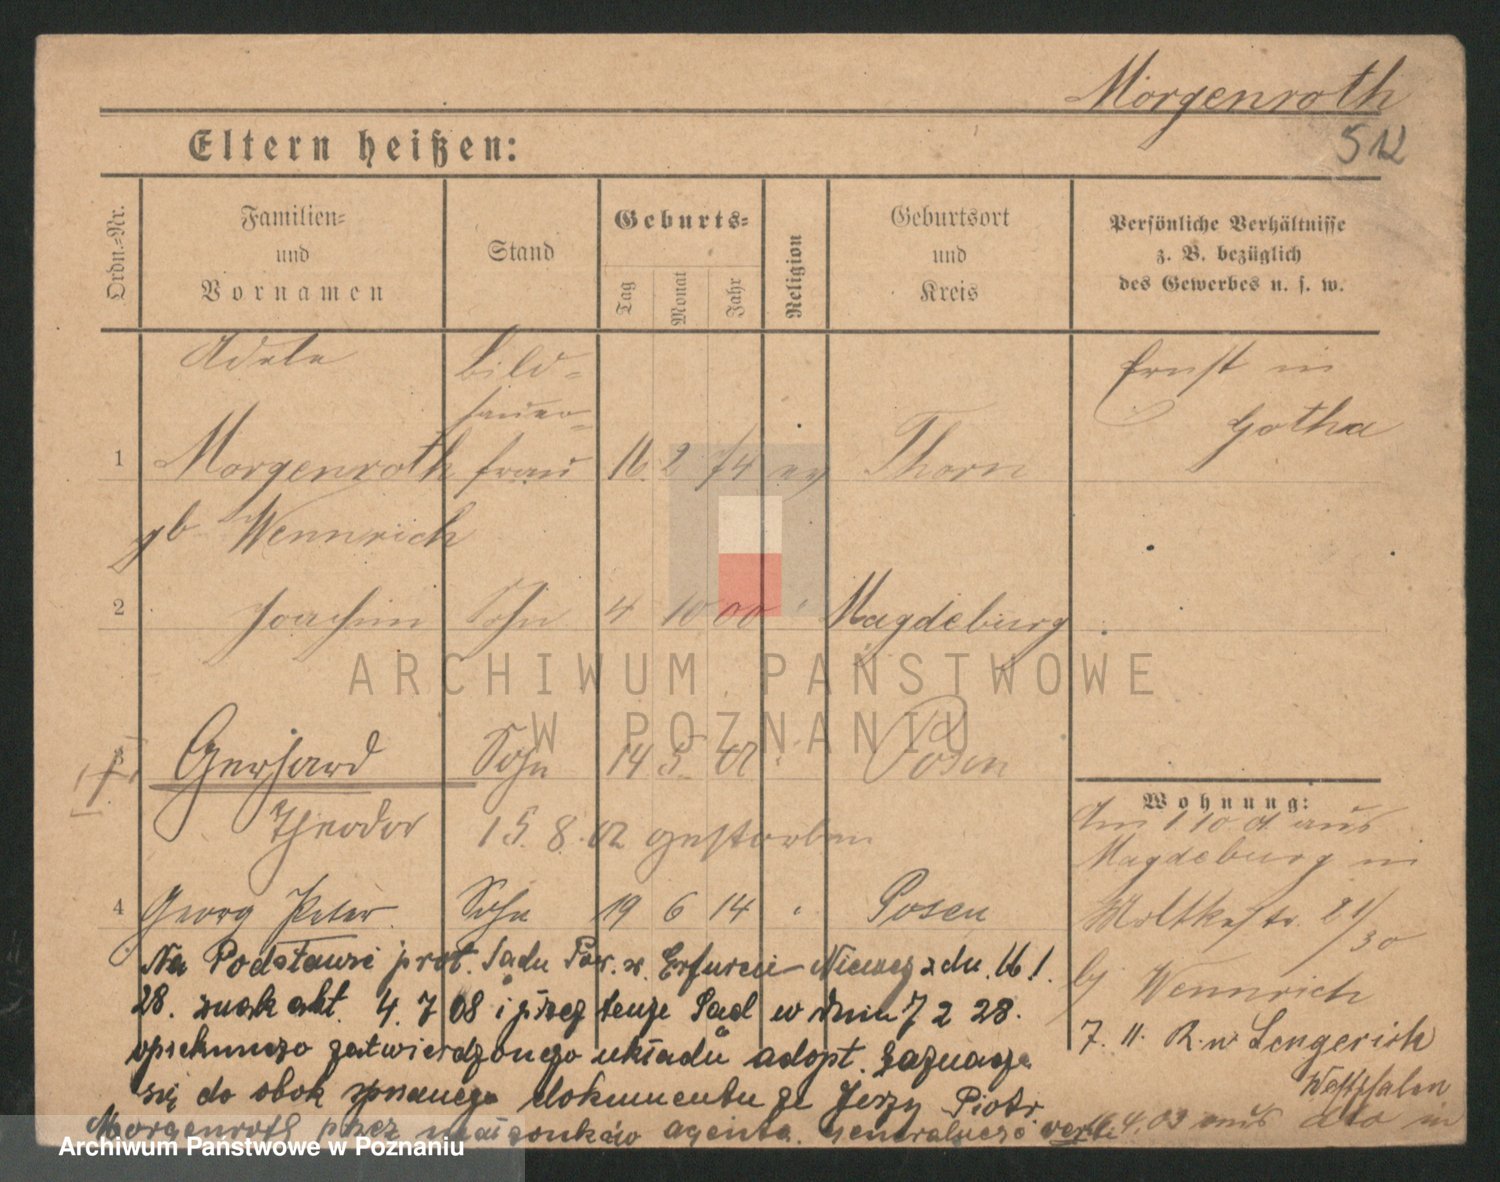 Morgenroth
512
Eltern heißen:
Ordn.=Nr.
Familien=
und
Vornamen
Stand
Geburts=
Tag
Monat
Jahr
Religion
Geburtsort
und
Kreis
Persönliche Verhältnisse
z. B. bezüglich
des Gewerbes u. s. w.
Adele Bild= Ernst in
hauer= Gotha
1 Morgenroth frau 16 2 74 ev Thorn
gb Wennrich
2 Joachim Sohn 4 10 00 Magdeburg
3 Gerhard Sohn 14 5 02 Posen
Theodor 15. 8. 02 gestorben
4 Georg Peter Sohn 19 6 14 Posen
Na Podstawie prot. Sądu Pow. w. Erfurcie Niemcy z dn. 16 1.
28. znak akt. 4. 7 08 i przez tenże Sąd w dniu 7 2 28.
opiekuńczo zatwierdzonego układu adopt. zaznacza
się do obok spisanego dokumentu że Jerzy Piotr
Morgenroth przez małżonków agenta generalnego
Wohnung:
Am 1 10 01 aus
Magdeburg in
Moltkestr. 21/
30
bj Wennrich
7. 11. R. w Lengerich
Westfalen
4. 03 aus dto in
ARCHIWUM PAŃSTWOWE
W POZNANIU
Archiwum Państwowe w Poznaniu